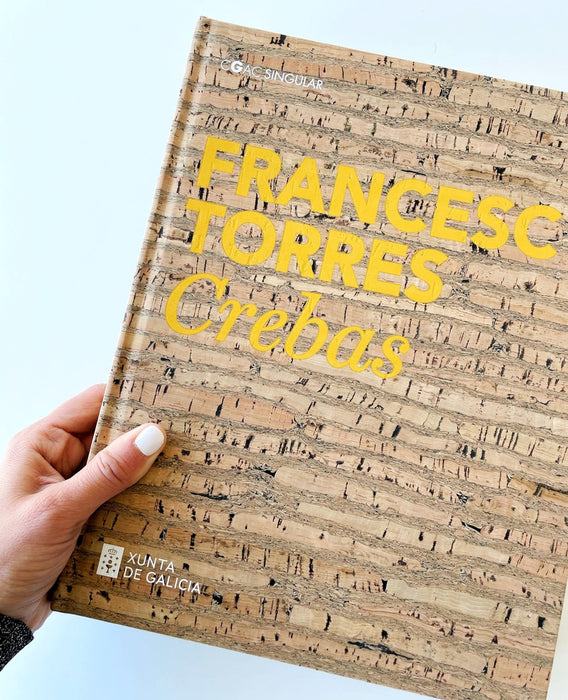 CGAC SINGULAR
FRANCESC
TORRES
Crebas
XUNTA
DE GALICIA